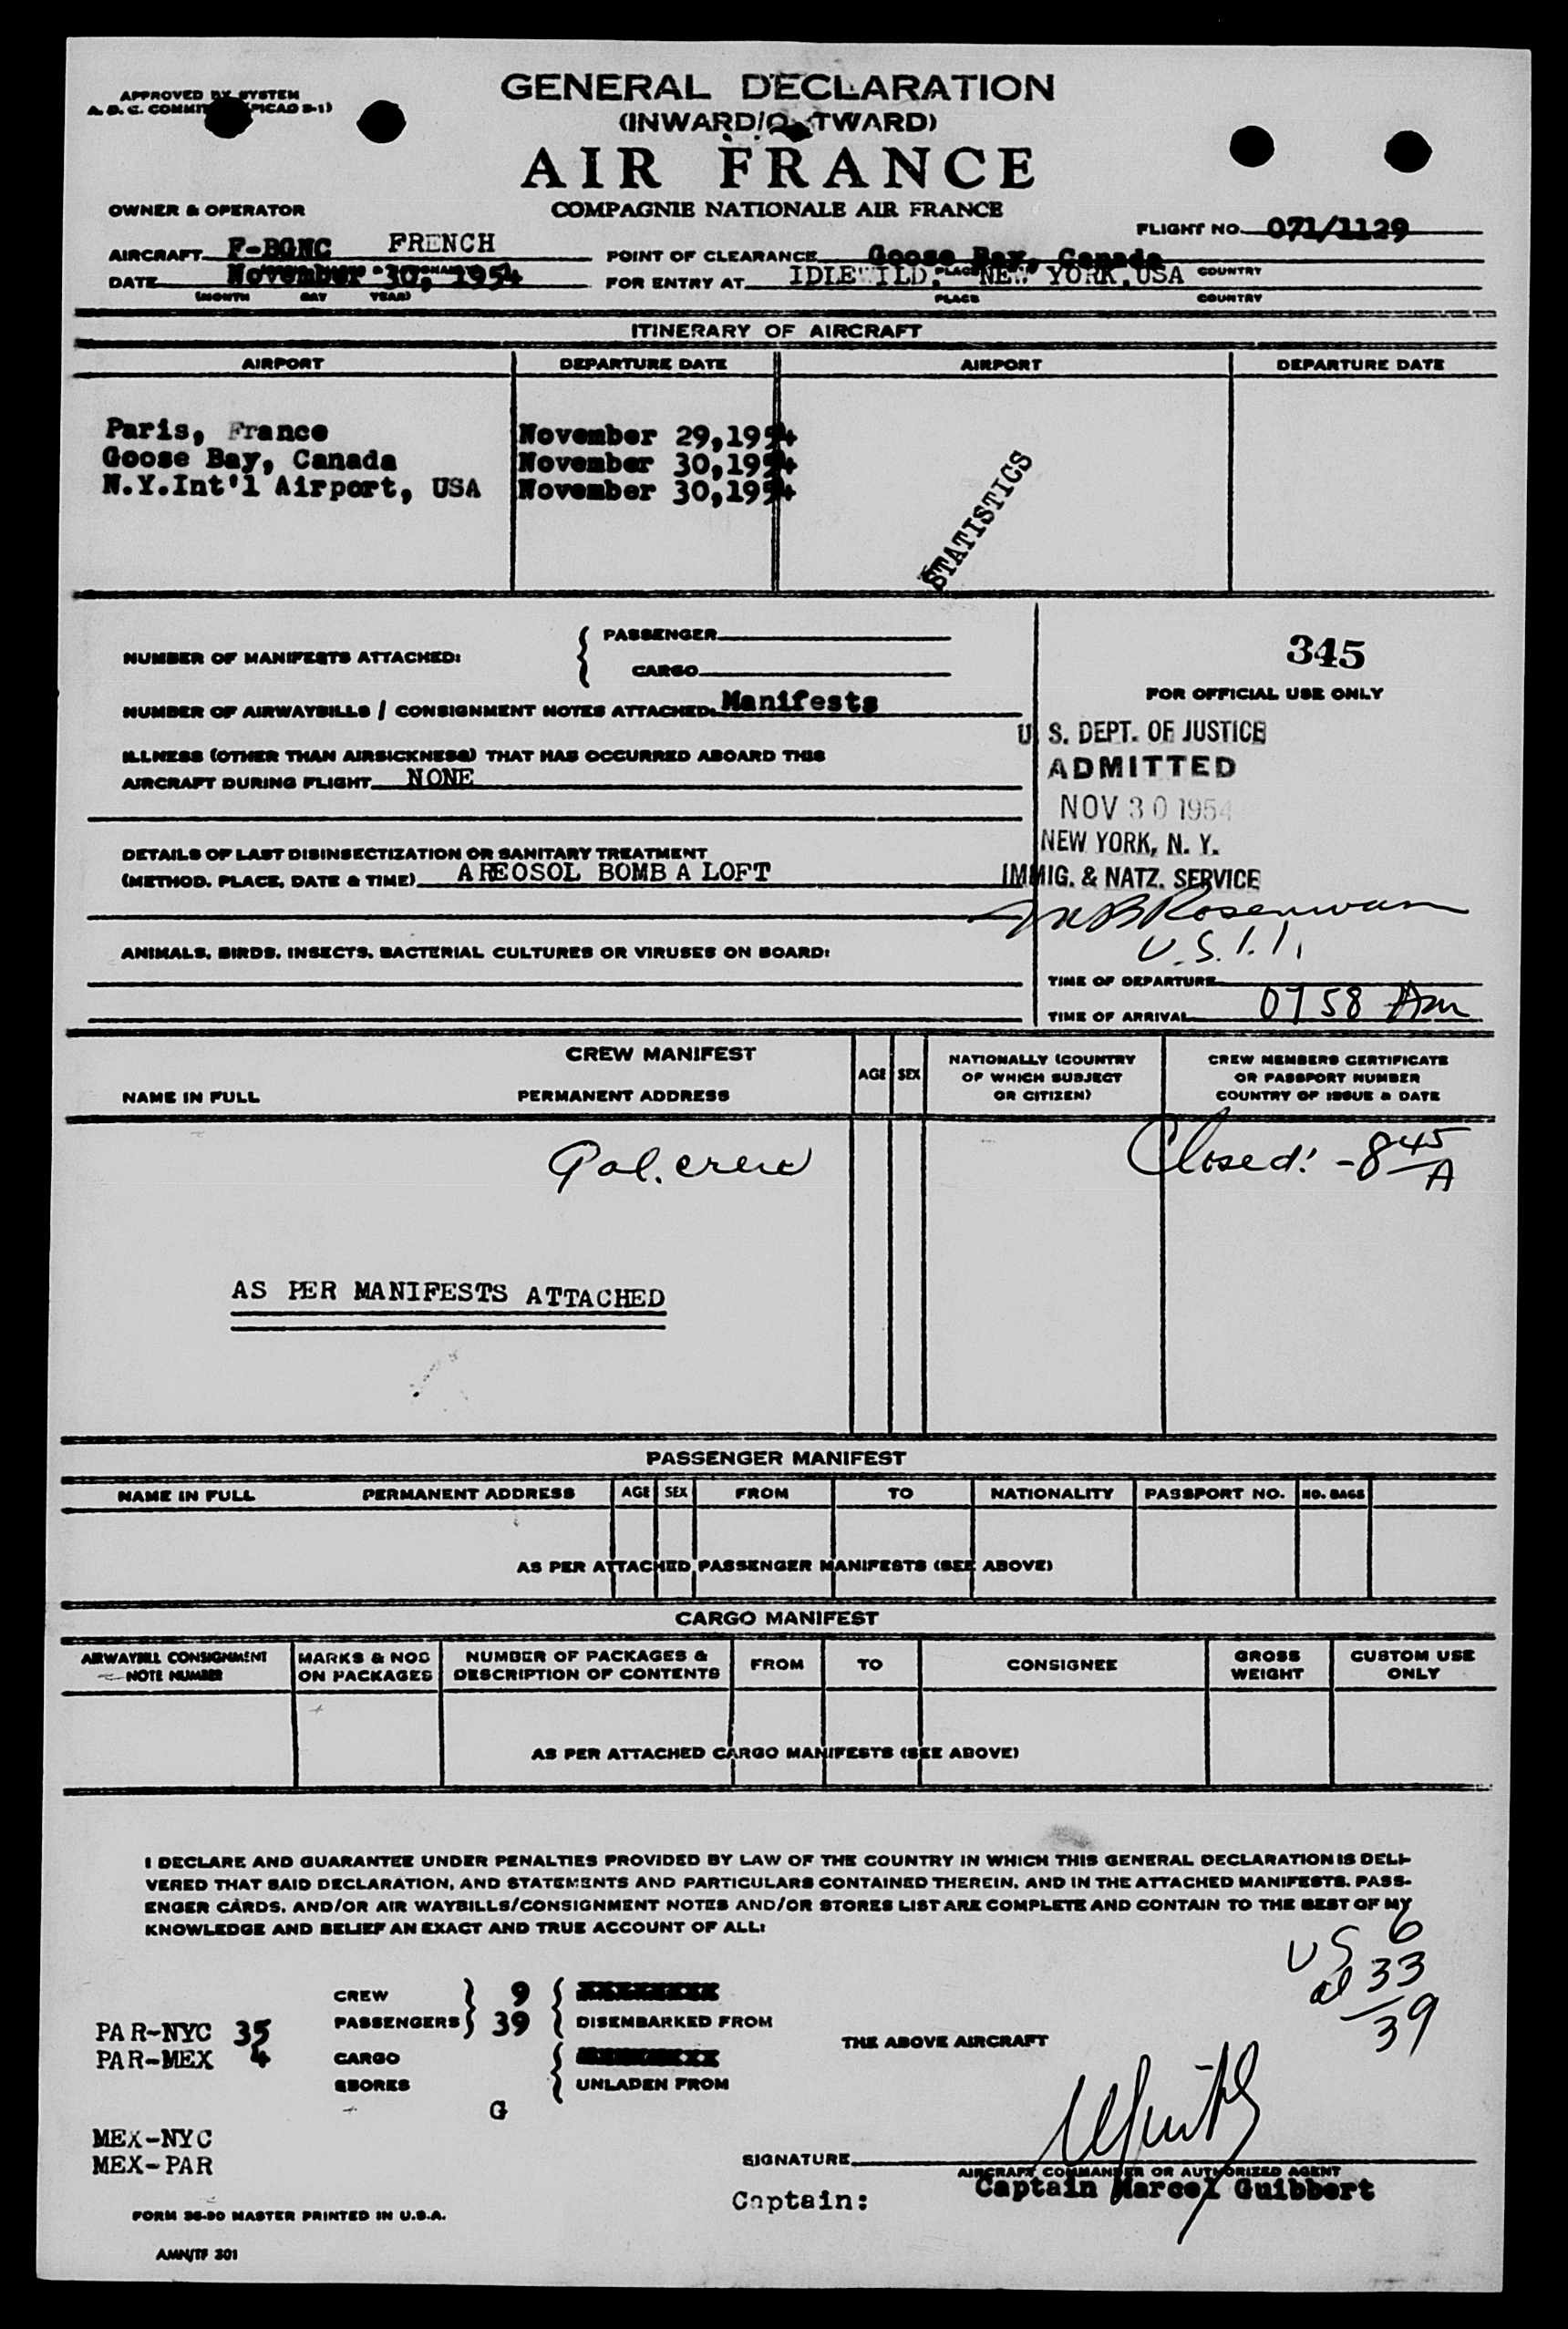 APPROVED BY SYSTEM
GENERAL DECLARATION
(INWARD/OUTWARD)
AIR FRANCE
COMPAGNIE NATIONALE AIR FRANCE
OWNER & OPERATOR
FLIGHT NO. 071/1129
AIRCRAFT F-BGNC FRENCH
POINT OF CLEARANCE Goose Bay, Canada
PLACE COUNTRY
DATE November 30, 1954
(MONTH DAY YEAR)
FOR ENTRY AT IDLEWILD, NEW YORK, USA
PLACE COUNTRY
ITINERARY OF AIRCRAFT
AIRPORT DEPARTURE DATE AIRPORT DEPARTURE DATE
Paris, France November 29,1954
Goose Bay, Canada November 30,1954
N.Y.Int'l Airport, USA November 30,1954
STATISTICS
NUMBER OF MANIFESTS ATTACHED:
PASSENGER
CARGO
345
FOR OFFICIAL USE ONLY
NUMBER OF AIRWAYBILLS / CONSIGNMENT NOTES ATTACHED: Manifests
ILLNESS (OTHER THAN AIRSICKNESS) THAT HAS OCCURRED ABOARD THIS
AIRCRAFT DURING FLIGHT NONE
U. S. DEPT. OF JUSTICE
ADMITTED
NOV 30 1954
NEW YORK, N. Y.
IMMIG. & NATZ. SERVICE
DETAILS OF LAST DISINSECTIZATION OR SANITARY TREATMENT
(METHOD, PLACE, DATE & TIME) AREOSOL BOMB A LOFT
U.S.I.I.
ANIMALS, BIRDS, INSECTS, BACTERIAL CULTURES OR VIRUSES ON BOARD:
TIME OF DEPARTURE
TIME OF ARRIVAL 0758 Am
CREW MANIFEST
NAME IN FULL PERMANENT ADDRESS
AGE SEX
NATIONALLY (COUNTRY
OF WHICH SUBJECT
OR CITIZEN)
CREW MEMBERS CERTIFICATE
OR PASSPORT NUMBER
COUNTRY OF ISSUE & DATE
crew
Closed: -8 45 A
AS PER MANIFESTS ATTACHED
PASSENGER MANIFEST
NAME IN FULL PERMANENT ADDRESS AGE SEX FROM TO NATIONALITY PASSPORT NO. NO. BAGS
AS PER ATTACHED PASSENGER MANIFESTS (SEE ABOVE)
CARGO MANIFEST
AIRWAYBILL CONSIGNMENT
NOTE NUMBER
MARKS & NOS
ON PACKAGES
NUMBER OF PACKAGES &
DESCRIPTION OF CONTENTS
FROM TO CONSIGNEE
GROSS
WEIGHT
CUSTOM USE
ONLY
AS PER ATTACHED CARGO MANIFESTS (SEE ABOVE)
I DECLARE AND GUARANTEE UNDER PENALTIES PROVIDED BY LAW OF THE COUNTRY IN WHICH THIS GENERAL DECLARATION IS DELI-
VERED THAT SAID DECLARATION, AND STATEMENTS AND PARTICULARS CONTAINED THEREIN, AND IN THE ATTACHED MANIFESTS, PASS-
ENGER CARDS, AND/OR AIR WAYBILLS/CONSIGNMENT NOTES AND/OR STORES LIST ARE COMPLETE AND CONTAIN TO THE BEST OF MY
KNOWLEDGE AND BELIEF AN EXACT AND TRUE ACCOUNT OF ALL:
US 6
al 33
39
CREW 9
PASSENGERS 39 DISEMBARKED FROM
PAR-NYC 35
THE ABOVE AIRCRAFT
PAR-MEX 4
CARGO
SBORES UNLADEN FROM
G
MEX-NYC
MEX-PAR
SIGNATURE
AIRCRAFT COMMANDER OR AUTHORIZED AGENT
Captain: Captain Marcel Guibbert
FORM 36-90 MASTER PRINTED IN U.S.A.
AMN/TF 301